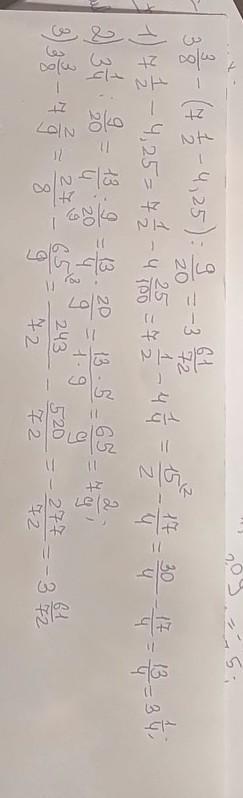 3 3/8 - (7 1/2 - 4,25) : 9/20 = -3 61/72
1) 7 1/2 - 4,25 = 7 1/2 - 4 25/100 = 7 1/2 - 4 1/4 = 15/2 - 17/4 = 30/4 - 17/4 = 13/4 = 3 1/4;
2) 3 1/4 : 9/20 = 13/4 : 9/20 = 13/4 · 20/9 = 13 · 5/1 · 9 = 65/9 = 7 2/9;
3) 3 3/8 - 7 2/9 = 27/8 - 65/9 = 243/72 - 520/72 = -277/72 = -3 61/72